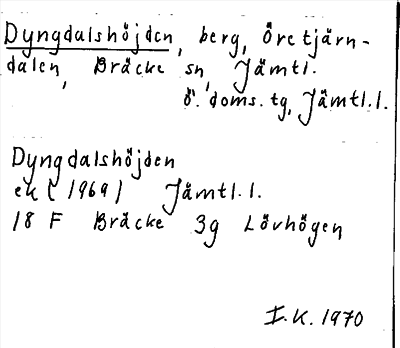 Dyngdalshöjden, berg, Öretjärn-
dalen, Bräcke sn, Jämtl.
ö. doms. tg, Jämtl.l.
Dyngdalshöjden
ek (1969) Jämtl.l.
18 F Bräcke 3g Lövhögen
I.K. 1970